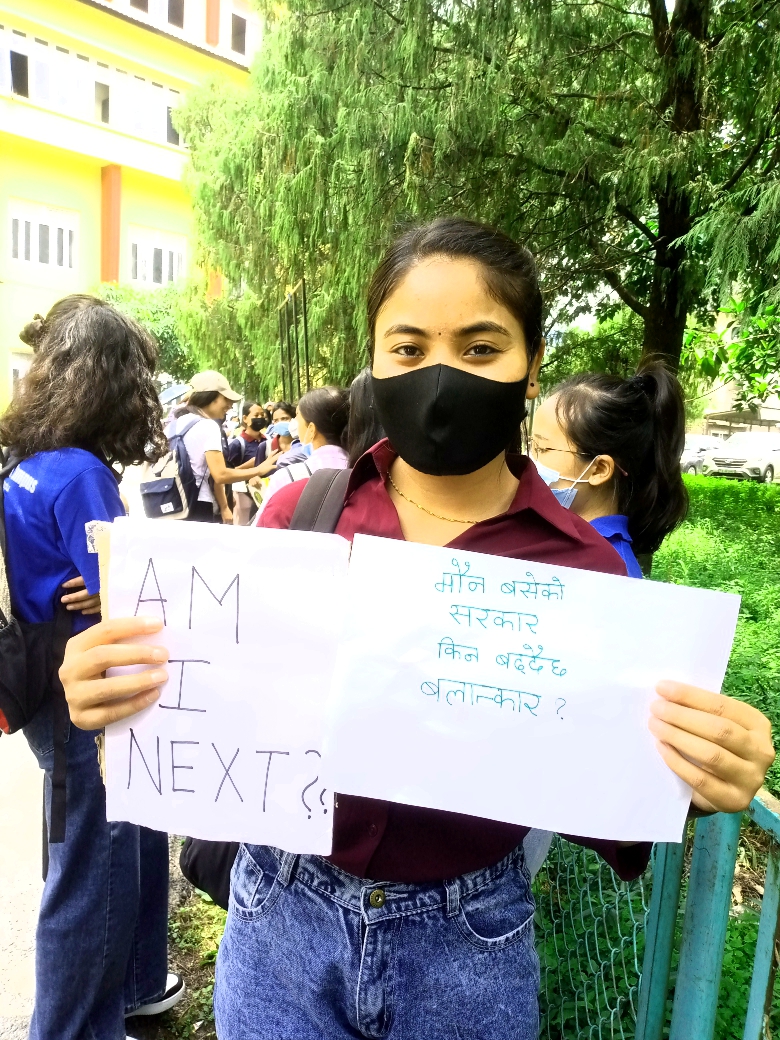 AM
I
NEXT??
मौन बसेको
सरकार
किन बढ्दैछ
बलात्कार ?